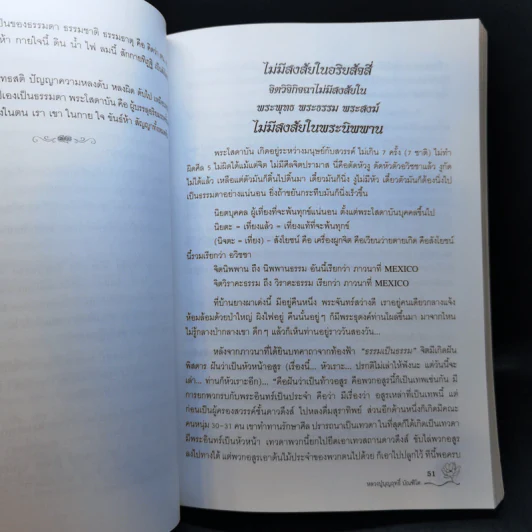 ป็นของธรรมดา ธรรมชาติ ธรรมธาตุ คือ จิตว่า
ห้า กายใจนี้ ดิน น้ำ ไฟ ลมนี้ สักกายทิฏฐิ
ทธสติ ปัญญาความหลงดับ หลงผิด ดับไป
ปเองเป็นธรรมดา พระโสดาบัน คือ ผู้บรรลุ
งในตน เรา เขา ในกาย ใจ ขันธ์ห้า สัญญา
ไม่มีสงสัยในอริยสัจสี่
จิตวิจิกิจฉาไม่มีสงสัยใน
พระพุทธ พระธรรม พระสงฆ์
ไม่มีสงสัยในพระนิพพาน
พระโสดาบัน เกิดอยู่ระหว่างมนุษย์กับสวรรค์ ไม่เกิน 7 ครั้ง (7 ชาติ) ไม่ทำ
ผิดศีล 5 ไม่ผิดได้แม้แต่จิต ไม่มีศีลจิตปรามาส นี่คือตัดหัวงู ตัดหัวตัวอวิชชาแล้ว งูกัด
ไม่ได้แล้ว เหลือแต่ตัวมันก็ดิ้นไปดิ้นมา เดี๋ยวมันก็นิ่ง งูไม่มีหัว เดี๋ยวตัวมันก็ต้องนิ่งไป
เป็นธรรมดาอย่างแน่นอน ยิ่งถ้าขยันกระทืบมันก็นิ่งเร็วขึ้น
นิยตบุคคล ผู้เที่ยงที่จะพ้นทุกข์แน่นอน ตั้งแต่พระโสดาบันบุคคลขึ้นไป
นิยตะ = เที่ยงแล้ว = เที่ยงแท้ที่จะพ้นทุกข์
(นิจตะ = เที่ยง) - สังโยชน์ คือ เครื่องผูกจิต คือเวียนว่ายตายเกิด คือสังโยชน์
นี้รวมเรียกว่า อวิชชา
จิตนิพพาน ถึง นิพพานธรรม อันนี้เรียกว่า ภาวนาที่ MEXICO
จิตวิราคะธรรม ถึง วิราคะธรรม เรียกว่า ภาวนาที่ MEXICO
ที่บ้านยางผาเด่งนี้ มีอยู่คืนหนึ่ง พระจันทร์สว่างดี เราอยู่คนเดียวกลางแจ้ง
ห้อมล้อมด้วยป่าใหญ่ ผิงไฟอยู่ คืนนั้นอยู่ๆ ก็มีพระธุดงค์ท่านโผล่ขึ้นมา มาจากไหน
ไม่รู้กลางป่ากลางเขา ดึกๆ แล้วก็เห็นท่านอยู่ราววันสองวัน...
หลังจากภาวนาที่ได้ยินบทคาถาจากท้องฟ้า “ธรรมเป็นธรรม” จิตมีเกิดฝัน
พิสดาร ฝันว่าเป็นหัวหน้าอสูร (เรื่องนี้... หัวเราะ... ปรกติไม่เล่าให้ฟังนะ แต่วันนี้จะ
เล่า... ท่านก็หัวเราะอีก)... “คือฝันว่าเป็นท้าวอสูร คือพวกอสูรนี้ก็เป็นเทพเช่นกัน มี
การยกพวกรบกับพระอินทร์เป็นประจำ คือว่า มีเรื่องว่า อสูรเหล่าที่เป็นเทพนี้ แต่
ก่อนเป็นผู้ครองสวรรค์ชั้นดาวดึงส์ ไปหลงดื่มสุราทิพย์ ส่วนอีกด้านหนึ่งก็เกิดมีคณะ
คนหนุ่ม 30-31 คน เขาทำทานรักษาศีล ปรารถนาเป็นเทวดา ในที่สุดก็ได้เกิดเป็นเทวดา
มีพระอินทร์เป็นหัวหน้า เทวดาพวกนี้ยกไปยึดเอาเทวสถานดาวดึงส์ ขับไล่พวกอสูร
ลงไปทางใต้ แต่พวกอสูรเอาต้นไม้ประจำของพวกตนไปด้วย ก็เอาไปปลูกไว้ ทีนี้พอครบ
51
หลวงปู่บุญฤทธิ์ บัณฑิโต